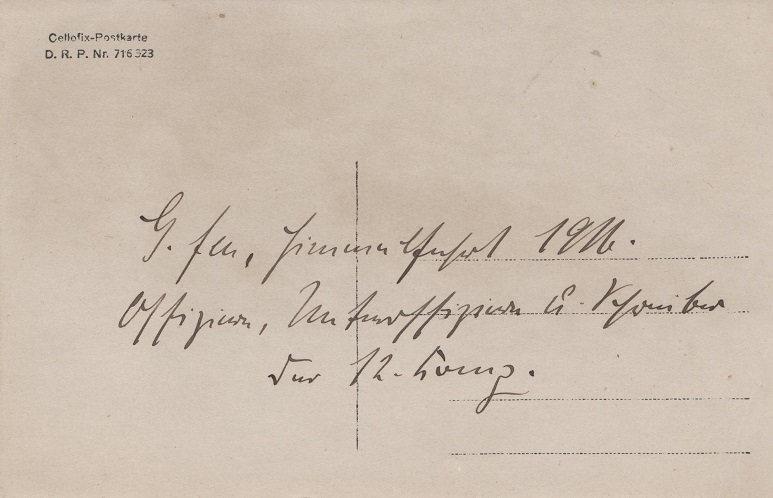 Cellofix-Postkarte
D. R. P. Nr. 716323
Himmelfahrt 1916.
Offiziere, Unteroffiziere u. Schreiber
der 12. Komp.